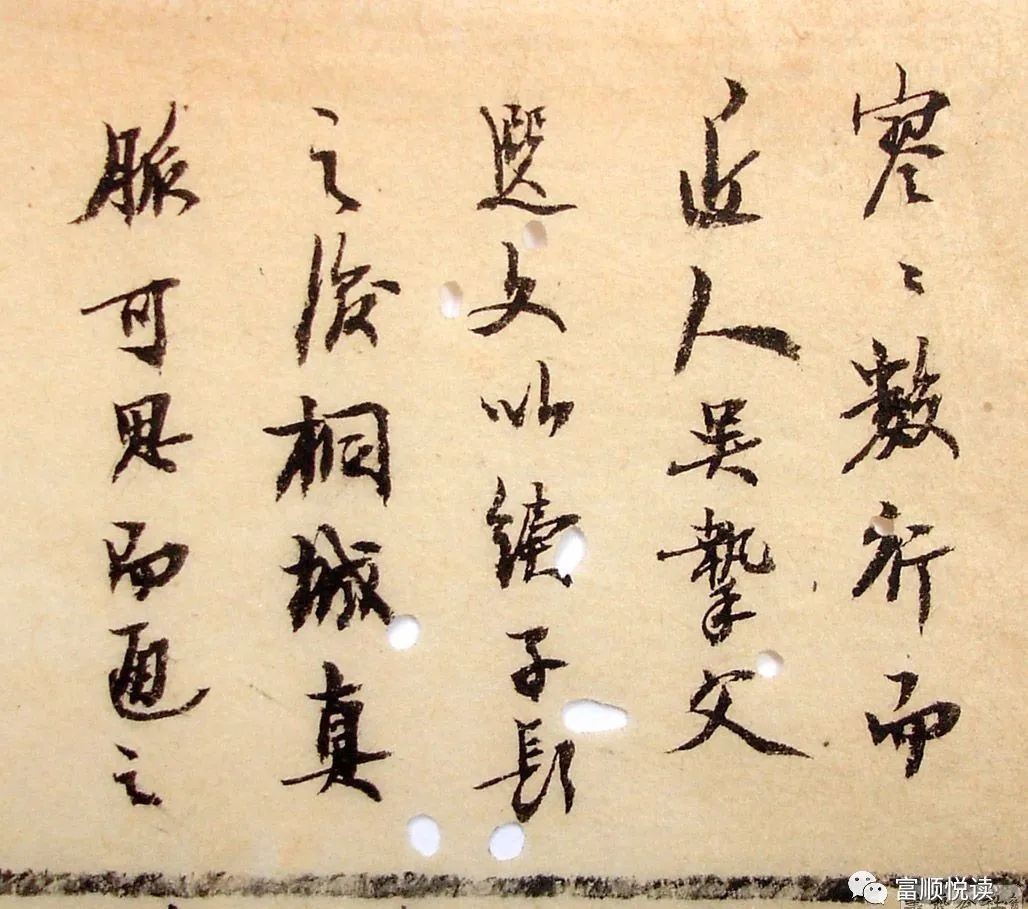 寥〻數行而
近人吳摯父
選文以續子長
之後桐城真
脈可思而通之
富顺悦读